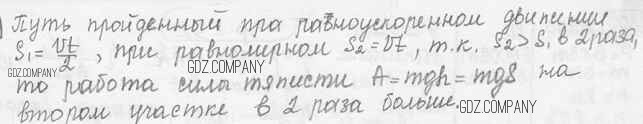 Путь пройденный при равноускоренном движении
S₁ = vt/2, при равномерном S₂ = vt, т.к. S₂ > S₁ в 2 раза,
GDZ.COMPANY GDZ.COMPANY
то работа силы тяжести A = mgh = mgS на
втором участке в 2 раза больше.
GDZ.COMPANY